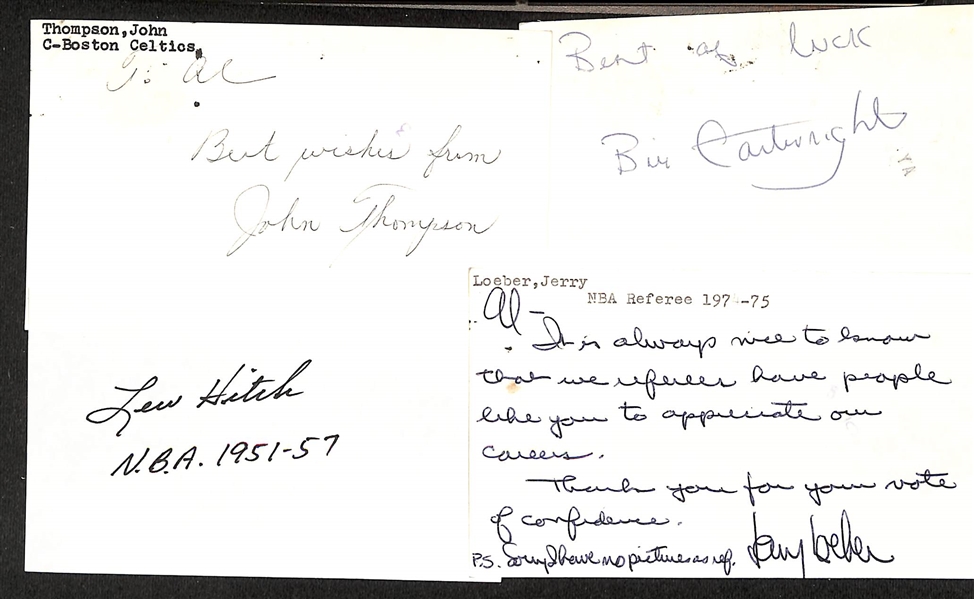 Thompson,John
C-Boston Celtics
To Al
Best wishes from
John Thompson
Best of luck
Bill Cartwright
Lew Hitch
N.B.A. 1951-57
Loeber,Jerry
NBA Referee 197 -75
Al-
It is always nice to know
that we referees have people
like you to appreciate our
careers.
Thank you for your vote
of confidence.
P.S. Sorry I have no pictures as ref. Jerry Loeber